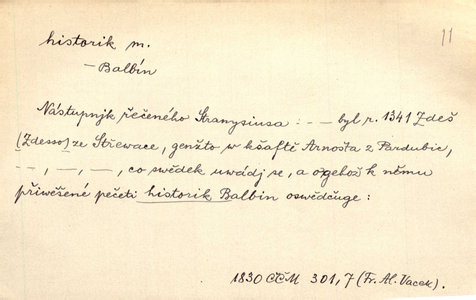 historik m.
11
– Balbín
Nástupnjk řečeného Stranysiusa : – – byl r. 1341 Zdeš
(Zdesso) ze Střewace, genžto w kšaftě Arnošta z Pardubic,
– –, –, –, co swědek uwádj se, a o gehož k němu
přiwěšené pečeti historik Balbin oswědčuge :
1830 ČČM 301,7 (Fr. Al. Vacek).